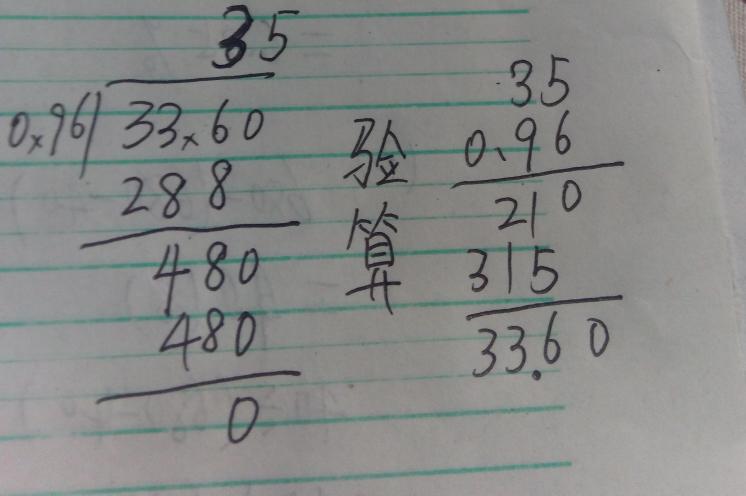 35
0.96 33.60
288
480
480
0
验算
35
0.96
210
315
33.60